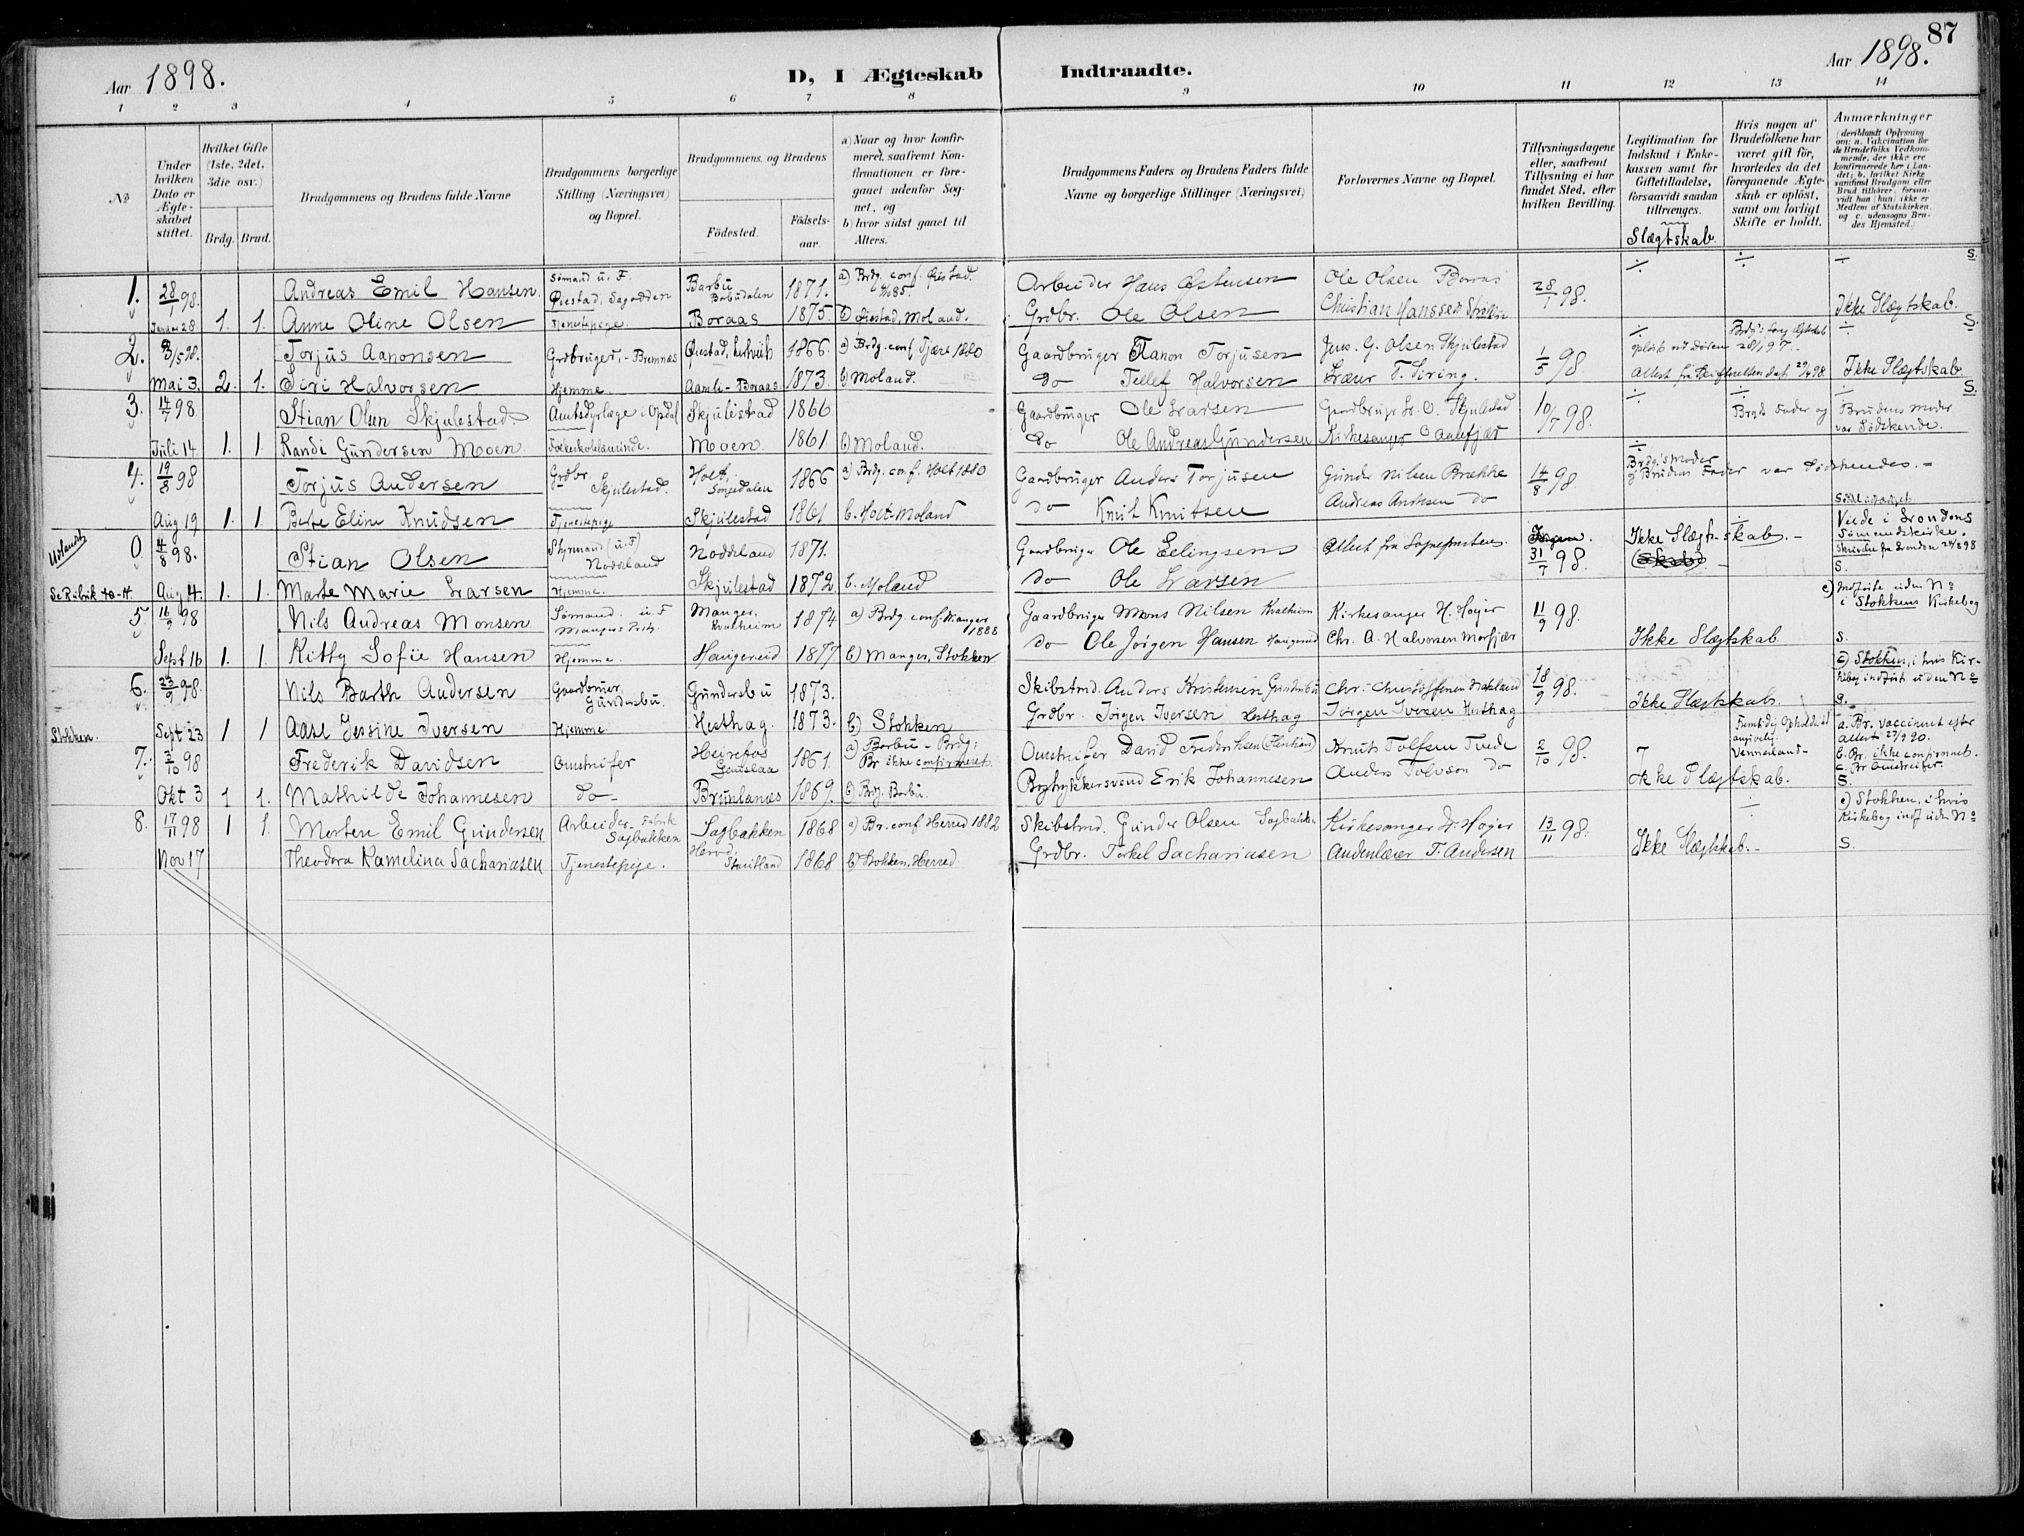 87
Aar 1898.
D, I Ægteskab
Indtraadte.
Aar 1898.
1 2 3 4 5 6 7 8 9 10 11 12 13 14
No
Under hvilken Dato er Ægteskabet stiftet.
Hvilket Gifte (1ste, 2det, 3die osv.)
Brdg. Brud.
Brudgommens og Brudens fulde Navne
Brudgommens borgerlige Stilling (Næringsvei) og Bopæl.
Brudgommens og Brudens
Födested.
Födselsaar.
a) Naar og hvor konfirmeret, saafremt Konfirmationen er foregaaet udenfor Sognet, og
b) hvor sidst gaaet til Alters.
Brudgommens Faders og Brudens Faders fulde Navne og borgerlige Stillinger (Næringsvei)
Forlovernes Navne og Bopæl.
Tillysningsdagene eller, saafremt Tillysning ei har fundet Sted, efter hvilken Bevilling.
Legitimation for Indskud i Enkekassen samt for Giftetilladelse, forsaavidt saadan tiltrænges.
Slægtskab
Hvis nogen af Brudefolkene har været gift för, hvorledes da det foregaaende Ægteskab er oplöst, samt om lovligt Skifte er holdt.
Anmærkninger
(deriblandt Oplysning om: a. Vakcination for de Brudefolks Vedkommende, der ikke ere konfirmerede her i Landet; b. hvilket Kirkesamfund Brudgom eller Brud tilhörer, forsaavidt han (hun) ikke er Medlem af Statskirken, og c. udensogns Brudes Hjemsted.)
1. 28/1 98. Andreas Emil Hansen. Sømand u. F. Øiestad, Sagodden Barbu Barbudalen 1871. a) Brdg. conf. Øiestad 85. Arbeider Hans Østensen Ole Olsen Boraas 28/1 98. ÷ ÷ ÷ S.
Januar 28 1. 1. Anne Oline Olsen Tjenestepige. Boraas 1875. b) Øiestad, Moland. Grdbr. Ole Olsen Christian Hanssen Ikke Slægtskab.
2. 3/5 98. Torjus Aanonsen Grdbruger, - Bremnæs Øiestad, 1866. a) Brdg. conf. Tjære 1880 Gaardbruger Aanon Torjusen Jens. G. Olsen Skjulestad 1/5 98 ÷ ÷ S.
Mai 3. 2. 1. Siri Halvorsen Hjemme. Aamli - Boraas 1873. b) Moland. do Tellef Halvorsen Lærer T. Siring. Attest fra Skifteretten dat. 29/4 98 Ikke Slægtskab
3. 14/7 98. Stian Olsen Skjulestad. Amtsdyrlæge i Opdal Skjulestad 1866 Gaardbruger Ole Larsen Gaardbruger L. O. Skjulestad 10/7 98. ÷ Brgds Fader og Brudens Moder var Sødskende. S
Juli 14. 1. 1. Randi Gundersen Moen. Folkeskolelærerinde. Moen. 1861. b) Moland. do Ole Andreas Gundersen Kirkesanger O Aanefjær
4. 19/8 98 Torjus Andersen Grdbr. Skjulestad. Holt, Songedalen 1866 a) Brdg. conf. Holt 1880 Gaardbruger Anders Torjusen Gunder Nilsen Brække 14/8 98 ÷ Brdg's Moder & Brudens Fader var Sødskende. -
Aug 19 1. 1. Berte Eline Knudsen Tjenestepige Skjulestad 1861 b. Holt-Moland do Knut Knutsen Andreas Andersen do
Udlandet
0 4/8 98. Stian Olsen Styrmand (u. F) Noddeland Noddeland 1871. Gaardbruger Ole Eelingsen Attest fra Sognepresten. 31/7 98. Ikke Slægtskab. - Viede i Londons Sømandskirke. Skrivelse fra London 24/8 98 S.
Se Rubrik 10-14. Aug 4. 1. 1. Marte Marie Larsen Hjemme. Skjulestad 1872 b. Moland do Ole Larsen
5 16/9 98 Nils Andreas Monsen Sømand u. F Manger, Kvalheim 1874 a) Brdg. conf. Manger 1888 Gaardbruger Mons Nilsen Kvalheim Kirkesanger H. Højer 11/9 98. c) Indførte uden No i Stokkens Kirkebog
Sept 16 1. 1. Kitty Sofie Hansen Hjemme. Haugerud 1877 b) Manger, Stokken do Ole Jørgen Hansen Haugerud Chr. A. Halvorsen Morfjær Ikke Slægtskab S.
6. 23/9 98. Nils Barth Andersen Gaardbruer, Gundersbu. Gundersbu 1873. Skibstmd. Anders Kristensen Gundersbu Chr. Christoffersen 18/9 98. c) Stokken, i hvis Kirkebog indført uden No
Stokken. Sept 23 1 1 Aase Jensine Iversen Hjemme. Hesthag. 1873. b) Stokken Grdbr. Jørgen Iversen Hesthag Jørgen Iversen Hesthag Ikke Slægtskab. S.
7. 3/10 98 Frederik Davidsen Omstreifer Heirefos 1861. a) Barbu - Brdg; Br ikke confirmeret. Omstreifer David Frederiksen Knut Tolfsen Tvede 2/10 98. Vennesland- a. Br. vaccineret efter attest 27/9 90. b. Br. ikke confirmeret. c. Br Omstreifer.
Okt 3 1 1. Mathilde Johannesen do- Brunlanæs 1869. b) Brdg. Barbu. Bogtrykkersvend Erik Johannesen Anders Tolvson do Ikke Slægtskab. S.
8. 17/11 98 1 1. Morten Emil Gundersen Arbeider- Fabrik Sagbakken Sagbakken 1868 a) Br. conf. Herred 1882 Skibstmd. Gunder Olsen Sagbakken Kirkesanger H. Højer 13/11 98. ÷ c) Stokken, i hvis Kirkebog indf. uden No
Nov 17 Theodora Kamelina Sachariasen Tjenestepige. 1868 b) Stokken, Herred. Grdbr. Torkel Sachariasen Andenlærer T. Andersen Ikke Slægtskab. - S.